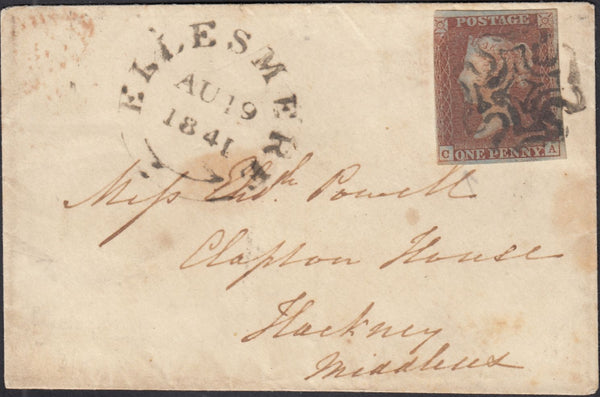 ELLESMERE
AU 19
1841
POSTAGE
C ONE PENNY A
Miss Eliz.th Powell
Clapton House
Hackney
Middlesex